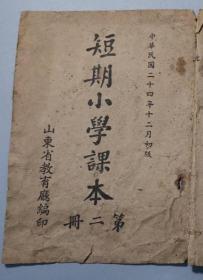 中華民國二十四年十二月初版
短期小學課本
第二冊
山東省教育廳編印